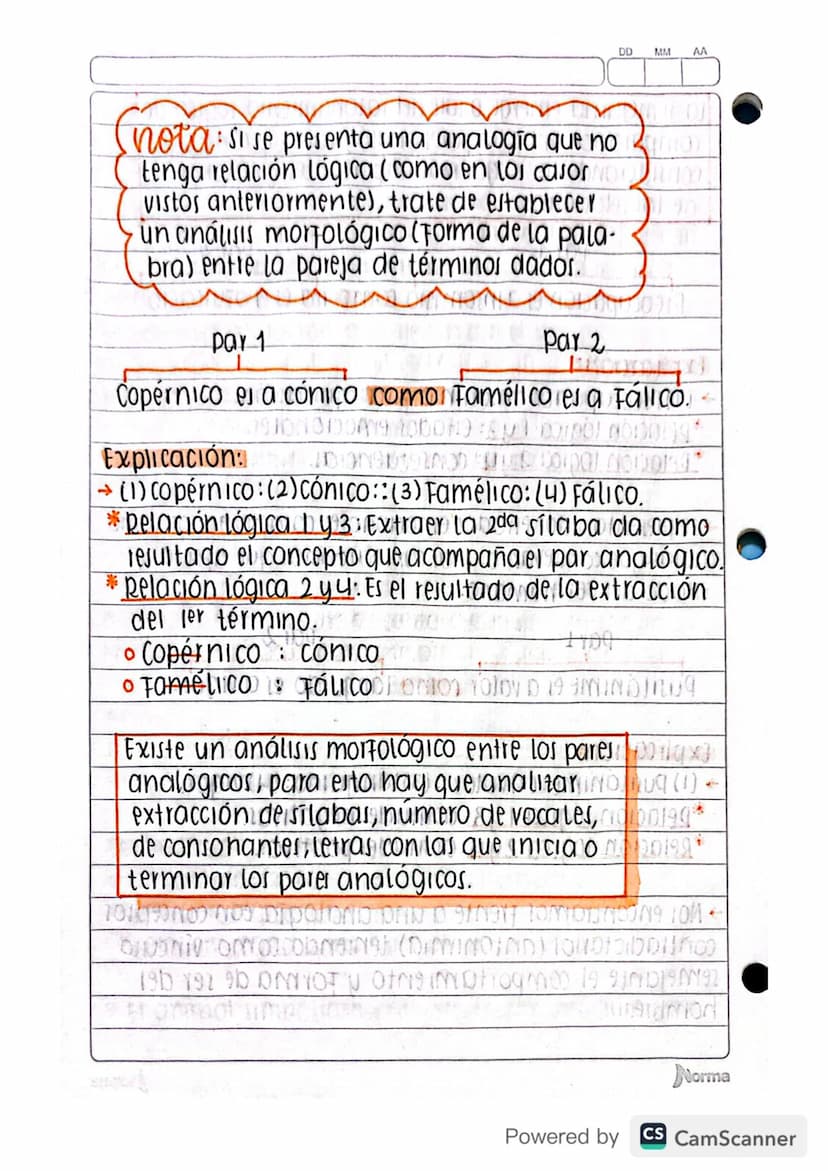 DD MM AA
nota: Si se presenta una analogía que no
tenga relación lógica (como en los casos
vistos anteriormente), trate de establecer
un análisis morfológico (forma de la pala-
bra) entre la pareja de términos dados.
par 1 par 2
Copérnico es a cónico como Famélico es a Fálico.
Explicación:
→ (1) Copérnico:(2) Cónico::(3) Famélico:(4) Fálico.
* Relación lógica 1 y 3: Extraer la 2da sílaba da como
resultado el concepto que acompaña el par analógico.
* Relación lógica 2 y 4: Es el resultado de la extracción
del 1er término.
o Copérnico : Cónico
o Famélico : Fálico
Existe un análisis morfológico entre los pares
analógicos, para esto hay que analizar
extracción de sílabas, número de vocales,
de consonantes, letras con las que inicia o
terminar los pares analógicos.
Norma
Powered by CS CamScanner